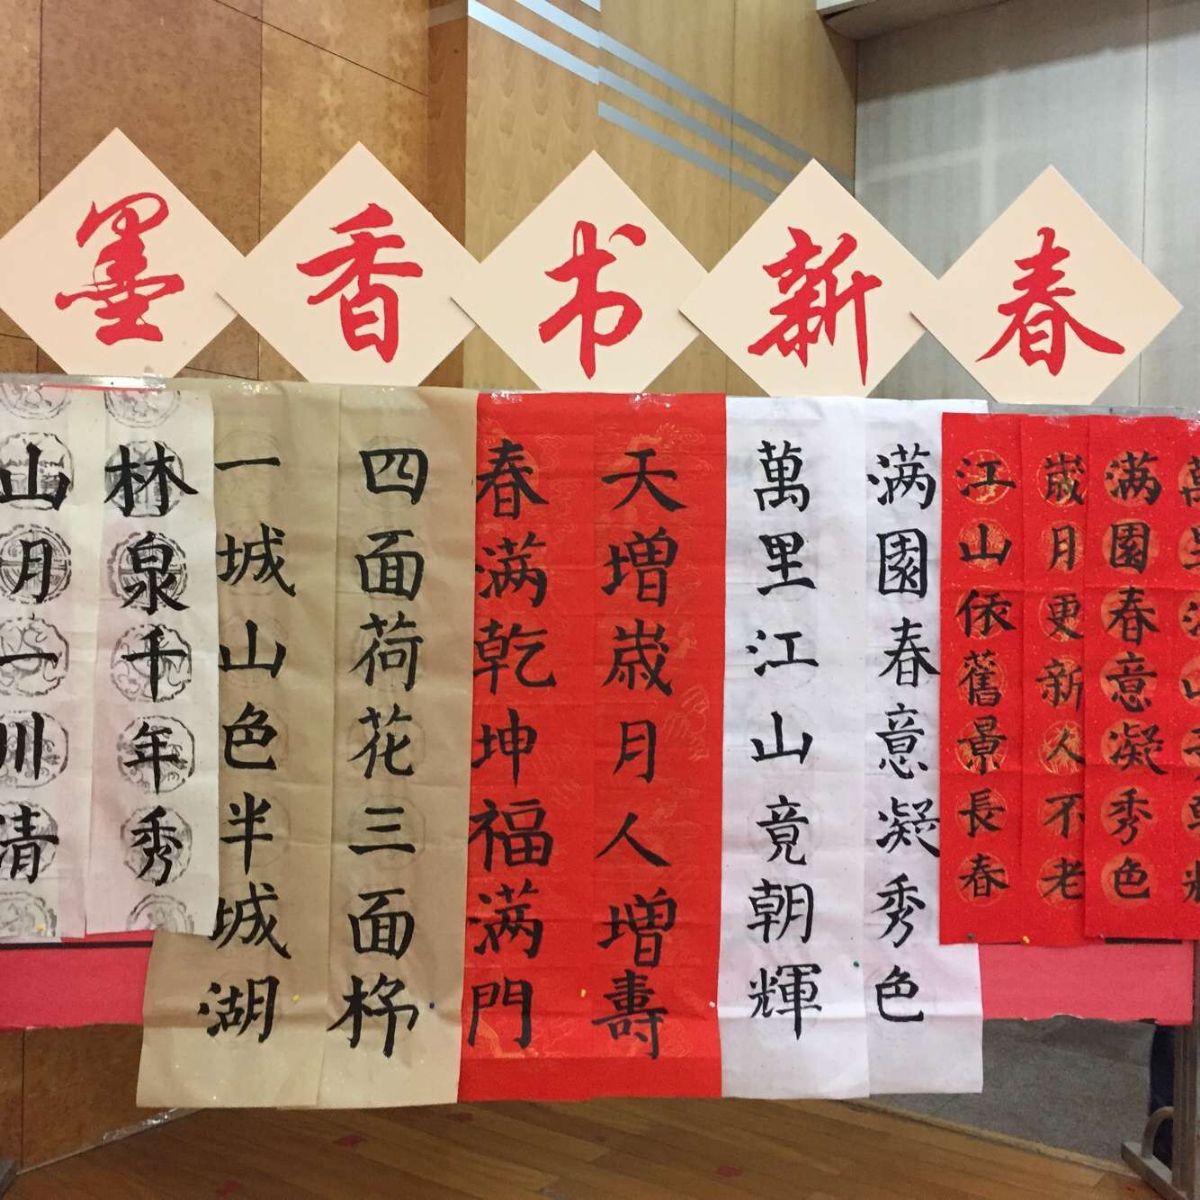 墨香书新春
满園春意凝秀色
歳月更新人不老
江山依舊景長春
满園春意凝秀色
萬里江山竟朝輝
天増歳月人増壽
春满乾坤福满門
四面荷花三面
一城山色半城湖
林泉千年秀
山月一川清